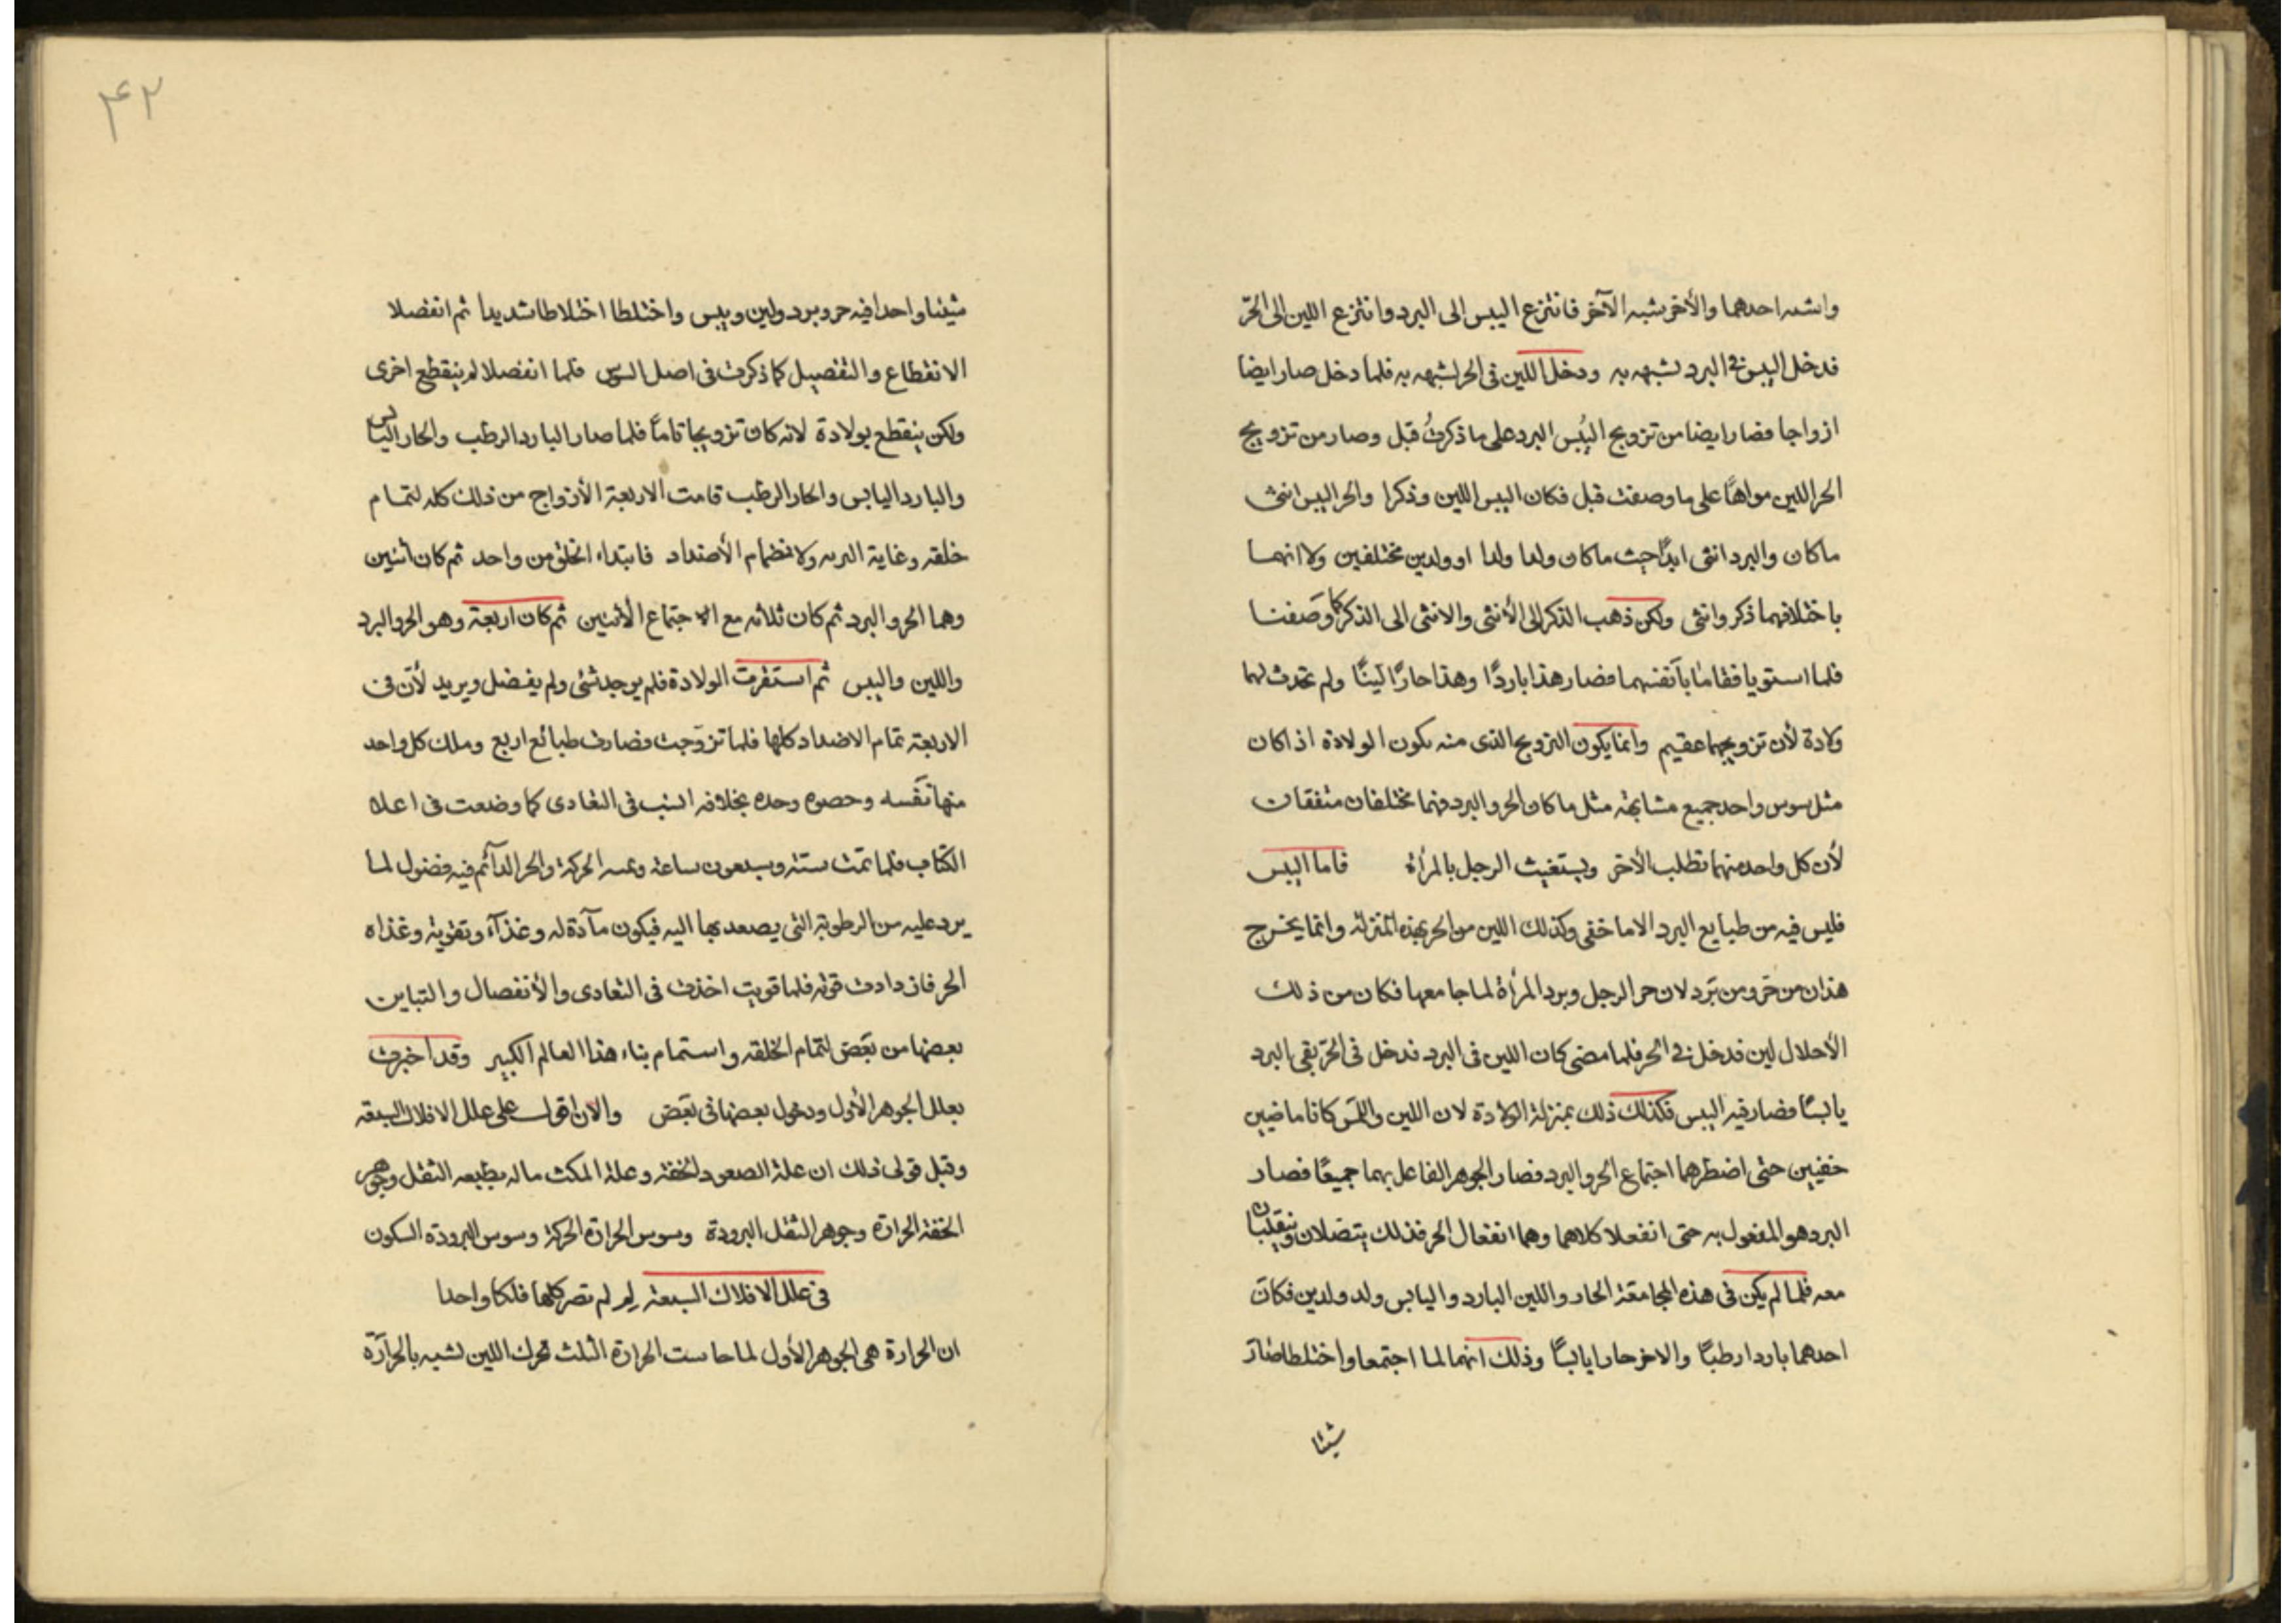 واشبه احدهما والأخر شبه الآخر فانتزع اليبس الى البرد وانتزع اللين الى الحرّ
فدخل اليبس فى البرد لشبهه به ودخل اللين فى الحر لشبهه به فلما دخل صار ايضا
ازواجا فصار ايضا من تزويج اليُبس البرد على ما ذكرتُ قبل وصار من تزويج
الحر اللين على ما وصفت قبل فكان اليبس اللين وذكرا والحر اليبس انثى
ما كان والبرد انثى ابدًا حيث ما كان ولدا ولدا او ولدين مختلفين ولا انهما
باختلافهما ذكر وانثى ولكن ذهب الذكر الى الأنثى والانثى الى الذكر كما وصفنا
فلما استويا فقاما بآنفسهما فصار هذا باردًا وهذا حارًا لينًا ولم تحدث لهما
ولادة لأن تزويجهما عقيم وانما يكون التزويج الذى منه يكون الولادة اذا كان
مثل سوس واحد جميع مشابهة مثل ما كان الحر والبرد فهما مختلفان متفقان
لأن كل واحد منهما تطلب الأخر ويستغيث الرجل بالمرأة فاما اليبس
فليس فيه من طبايع البرد الا ما خفى وكذلك اللين من الحر بهذه المنزلة وانما يخرج
هذان من حَر ومن بَرد لان حر الرجل وبرد المرأة لما جامعها فكان من ذلك
الأحلال لين فدخل فى الحر فلما مضى كان اللين فى البرد فدخل فى الحرّ بقى البرد
يابسًا فصار فيه اليبس فكذلك ذلك بمنزلة الولادة لان اللين واليبس كانا ماضيين
خفيين حتى اضطرهما اجتماع الحر والبرد فصار الجوهر الفاعل بهما جميعًا فصار
البرد هو المفعول به حتى انفعلا كلاهما وهما انفعال الحر فذلك يتصلان وينقلبان
معه فلما لم يكن فى هذه المجامعة الحار واللين البارد واليابس ولد ولدين فكان
احدهما باردا رطبًا والاخر حارا يابسًا وذلك انهما لما اجتمعا واختلطا صار
شيئا
۴۲
شيئا واحدا فيه حر وبرد ولين ويبس واختلطا اختلاطا شديدا ثم انفصلا
الانقطاع والتفصيل كما ذكرت فى اصل السوس فلما انفصلا لم ينقطع اخرى
ولكن ينقطع بولادة لانه كان تزويجا تامًا فلما صار البارد الرطب والحار اليابس
والبارد اليابس والحار الرطب قامت الاربعة الأزواج من ذلك كله لتمام
خلقه وغاية ولانضمام الأضداد فابتداء الخلق من واحد ثم كان أثنين
وهما الحر والبرد ثم كان ثلاثه مع الاجتماع الأثنين ثم كان اربعة وهو الحر والبرد
واللين واليبس ثم استقرت الولادة فلم يوجد شئى ولم يفضل ويريد لأن فى
الاربعة تمام الاضداد كلها فلما تزوّجت فصارت طبائع اربع وملك كل واحد
منها نَفسه وحده بخلافه فى التعادى كما وضعت فى اعلا
الكتاب فلما تمت ستة وسبعون ساعة الحركة والحر الدآئم فيه فضول لما
يرد عليه من الرطوبة التى يصعد بها اليه فيكون مآدة له وغذآء وتقوية وغذاه
الحر فازدادت قوته فلما قويت اخذت فى التعادى والأنفصال والتباين
بعضها من بَعَض لتمام الخلقه واستتمام بناء هذا العالم الكبير وقد اخبرت
بعلل الجوهر الأول ودخول بعضها فى بَعَض والآن اقول على علل الافلاك السبعة
وقبل قولى ذلك ان علة الصعود الخفة وعلة المكث ما له بطبعه الثقل وجوهر
الخفة الحرارة وجوهر الثقل البرودة وسوس الحرارة الحركة وسوس البرودة السكون
فى علل الافلاك السبعة لِمَ لم تصر كلها فلكا واحدا
ان الحرارة هى الجوهر الأول لما الحرارة الثلث تحرك اللين لشبهه بالحرارة